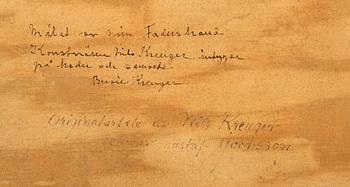 Målat av min Faders hand
Konstnären Nils Kreuger intygar
på heder och samvete
Bernie Kreuger
Originalarbete av Nils Kreuger
Gustaf